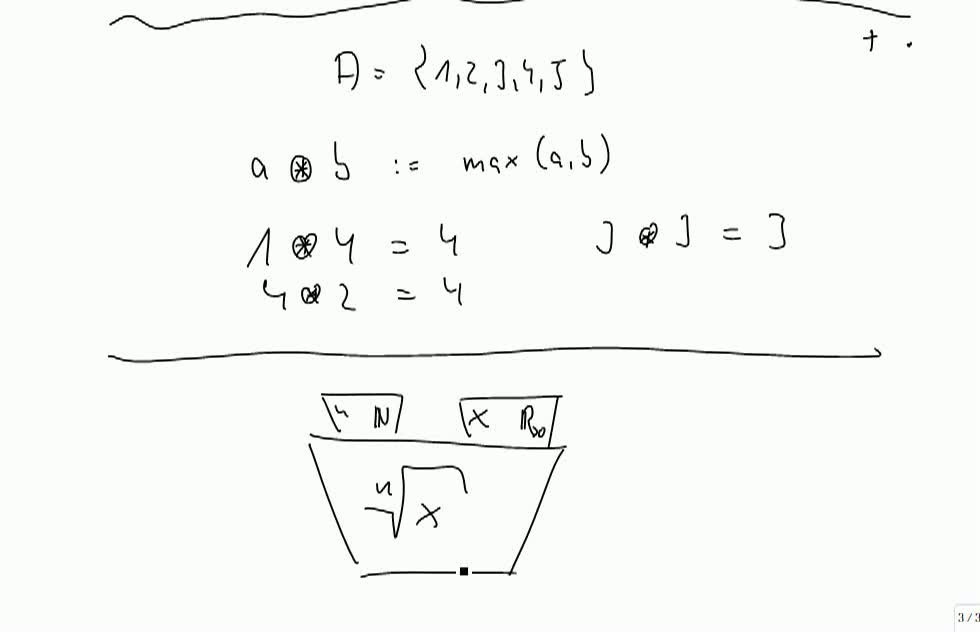 + ·
A = {1,2,3,4,5}
a ⊛ b := max (a,b)
1 ⊛ 4 = 4 3 ⊛ 3 = 3
4 ⊛ 2 = 4
n ℕ x ℝ≥0
ⁿ√x
3/3